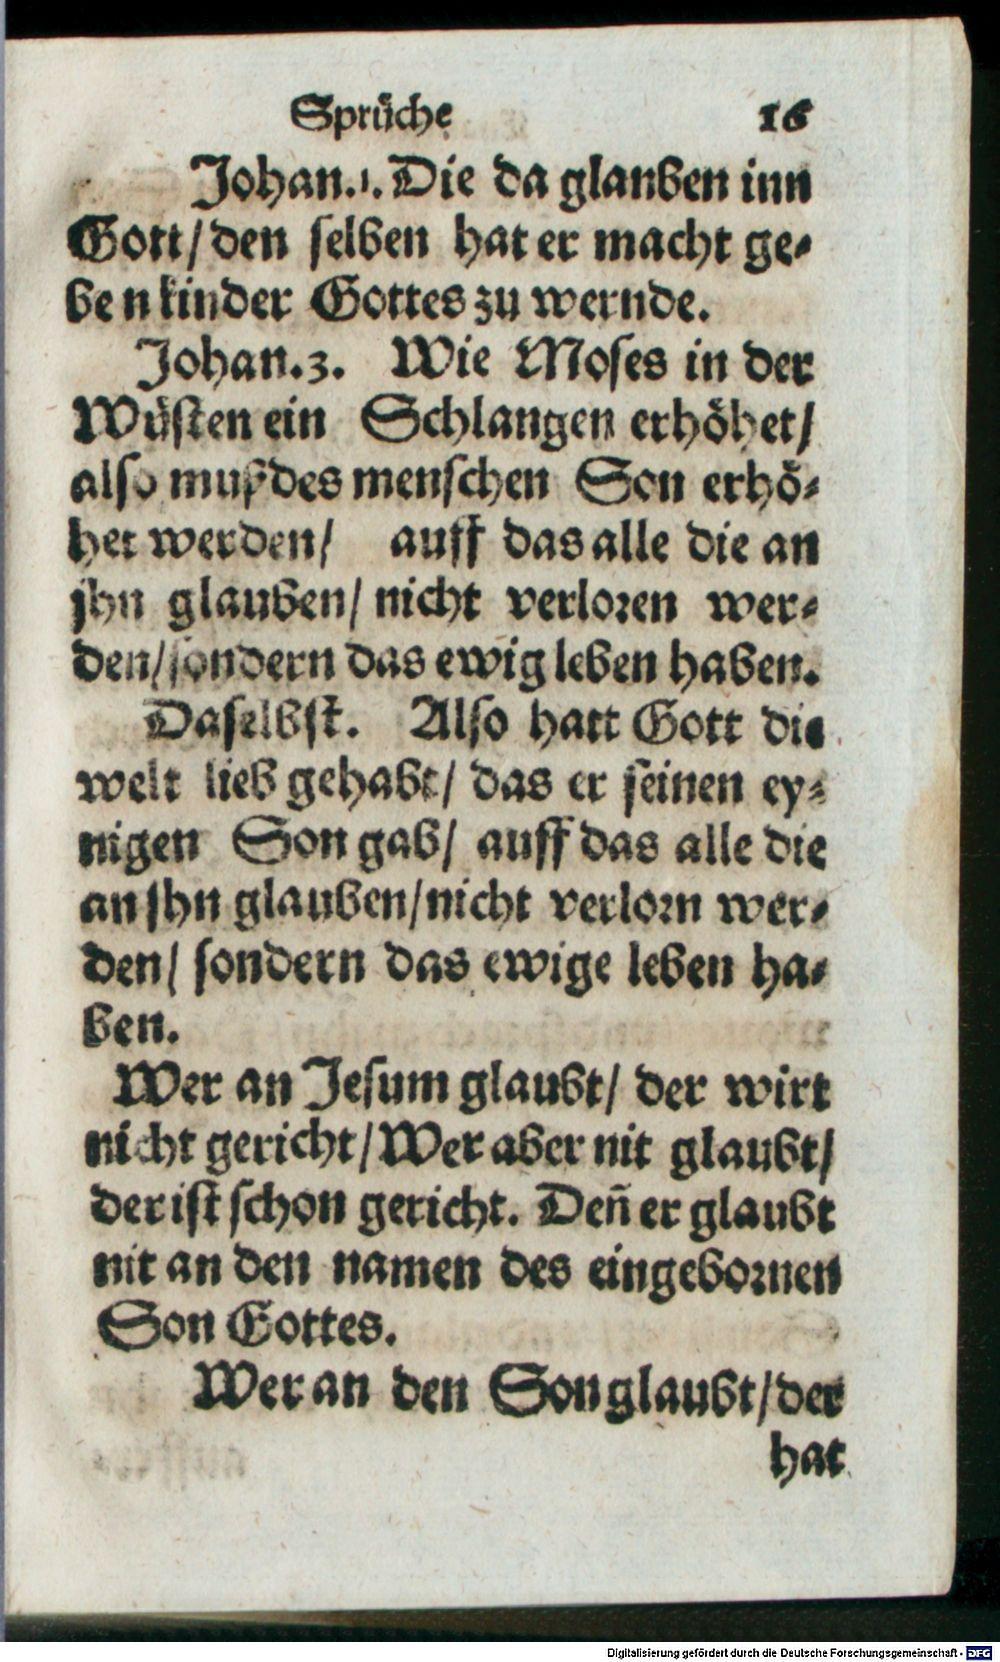 Sprüche 16
Johan.1. Die da glauben inn
Gott/ den selben hat er macht ge-
ben kinder Gottes zu wernde.
Johan.3. Wie Moses in der
Wüsten ein Schlangen erhöhet/
also muß des menschen Son erhö-
het werden/ auff das alle die an
jhn glauben/ nicht verloren wer-
den/ sondern das ewig leben haben.
Daselbst. Also hatt Gott die
welt lieb gehabt/ das er seinen ey-
nigen Son gab/ auff das alle die
an jhn glauben/ nicht verlorn wer-
den/ sondern das ewige leben ha-
ben.
Wer an Jesum glaubt/ der wirt
nicht gericht/ Wer aber nit glaubt/
der ist schon gericht. Deñ er glaubt
nit an den namen des eingebornen
Son Gottes.
Wer an den Son glaubt/ der
hat
Digitalisierung gefördert durch die Deutsche Forschungsgemeinschaft - DFG